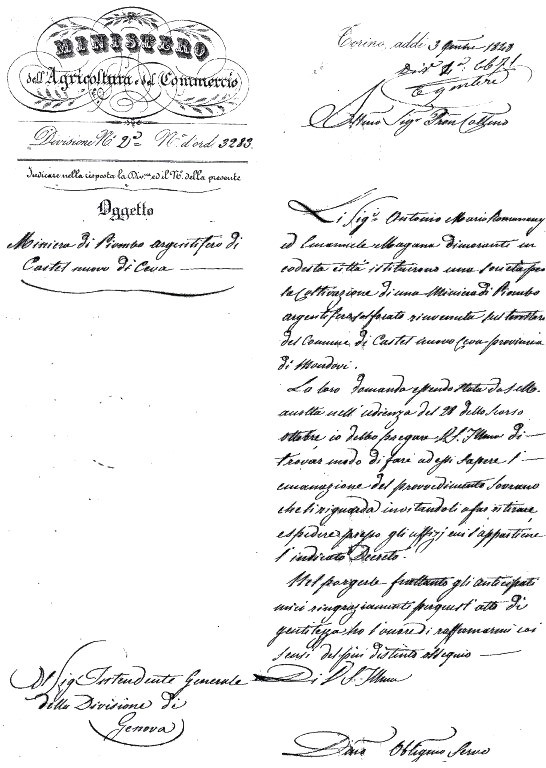 MINISTERO
dell'Agricoltura e del Commercio
Divisione N.º 2.ª N.º d'ord 3283
Indicare nella risposta la Div.ne ed il N.º della presente
Oggetto
Miniera di Piombo argentifero di
Castel nuovo di Ceva
Torino, addì 3
Ill.mo Sig.r
Li Sig.ri Antonio Maria
ed Emanuele Magana dimoranti in
codesta città istituirono una società per
la coltivazione di una Miniera di Piombo
argentifero solforato rinvenuta sul territorio
del Comune di Castel nuovo Ceva provincia
di Mondovì.
La loro domanda essendo stata da S. M.
accolta nell'udienza del 28 dello scorso
ottobre io debbo pregare V. S. Ill.ma di
trovar modo di fare ad essi sapere l'
emanazione del provvedimento Sovrano
che li riguarda invitandoli a far ritirare
e spedire presso gli uffizj cui s'appartiene
l'indicato Decreto.
Nel porgerle frattanto gli anticipati
miei ringraziamenti per quest'atto di
gentilezza ho l'onore di raffermarmi coi
sensi del più distinto ossequio
Di V. S. Ill.ma
Al Sig.r Intendente Generale
della Divisione di
Genova
Obbligmo Servo